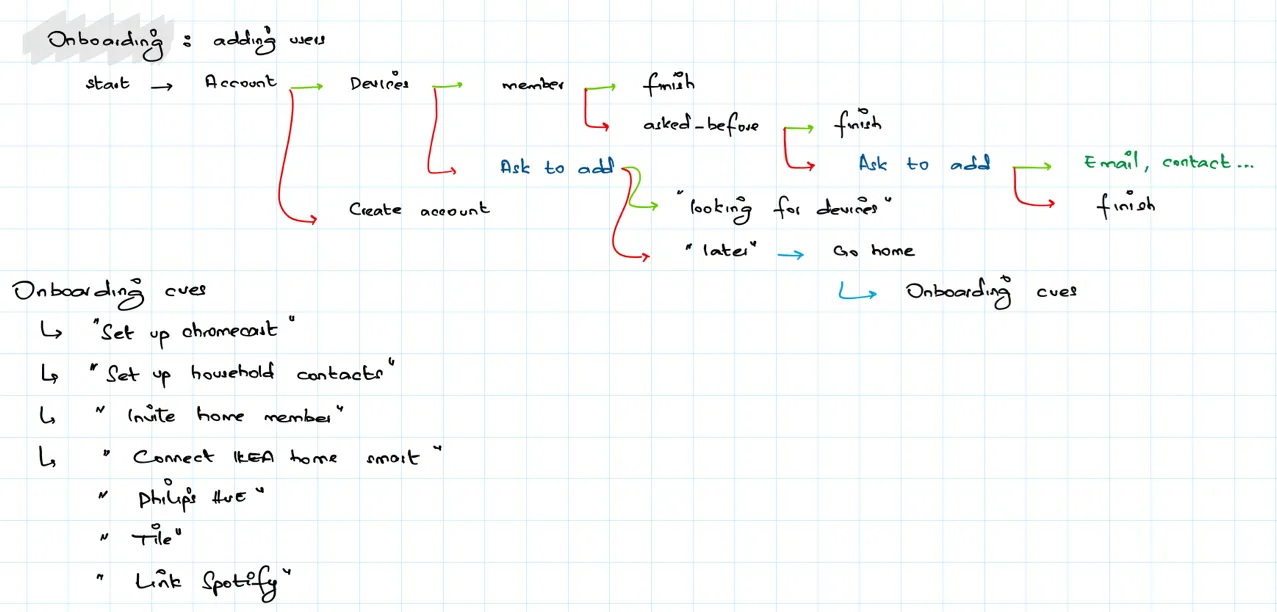 Onboarding : adding users
start → Account → Devices → member → finish
asked-before → finish
Ask to add → Ask to add → Email, contact...
Create account "looking for devices" finish
"later" → Go home
Onboarding cues ↳ Onboarding cues
↳ "Set up chromecast"
↳ "Set up household contacts"
↳ "Invite home member"
↳ "Connect IKEA home smart"
"Philips HUE"
"Tile"
"Link Spotify"